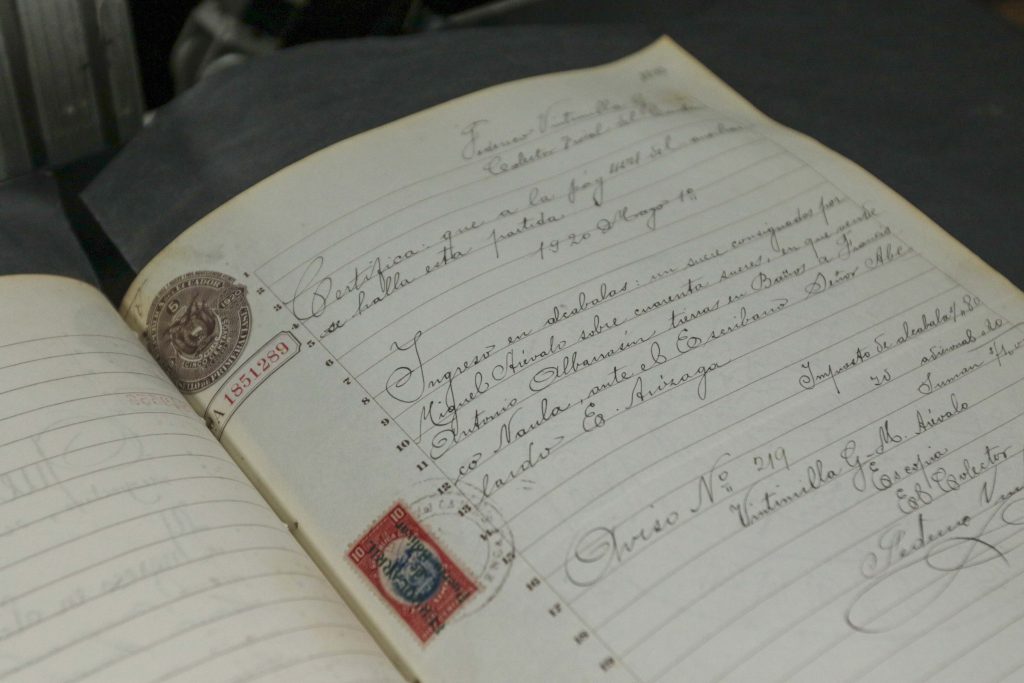 Federico Vintimilla G.
Colector Fiscal del
Certifica: que a la pág del
se halla esta partida
1920 Mayo 18
Ingreso en alcabalas: un sucre consignados por
Miguel Arévalo sobre cuarenta sucres, en que vende
Antonio Albarrasín tierras en Baños a Francis
co Naula, ante el Escribano Señor Abe
lardo E. Arízaga
Impuesto de alcabala
id adicional " 20
Suman
Aviso No. 219
Vintimilla G - M. Arévalo
Es copia
El Colector
Federico
ECUADOR
5
A 1851289
10
10
1
2
3
4
5
6
7
8
9
10
11
12
13
14
15
16
17
18
19